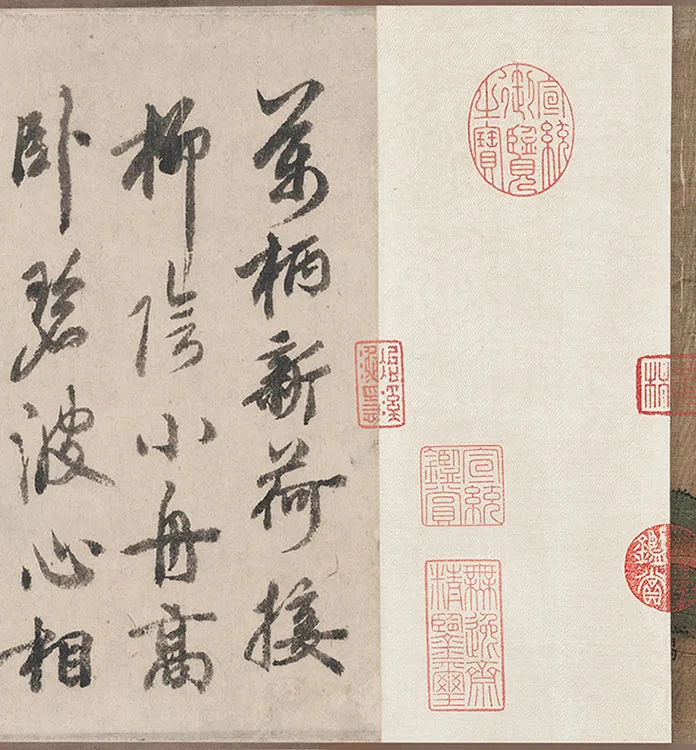 鑑賞
宣統
御覽
之寶
宣統
鑑賞
無逸齋
精鑒璽
萬柄新荷接
柳陰小舟高
卧碧波心相